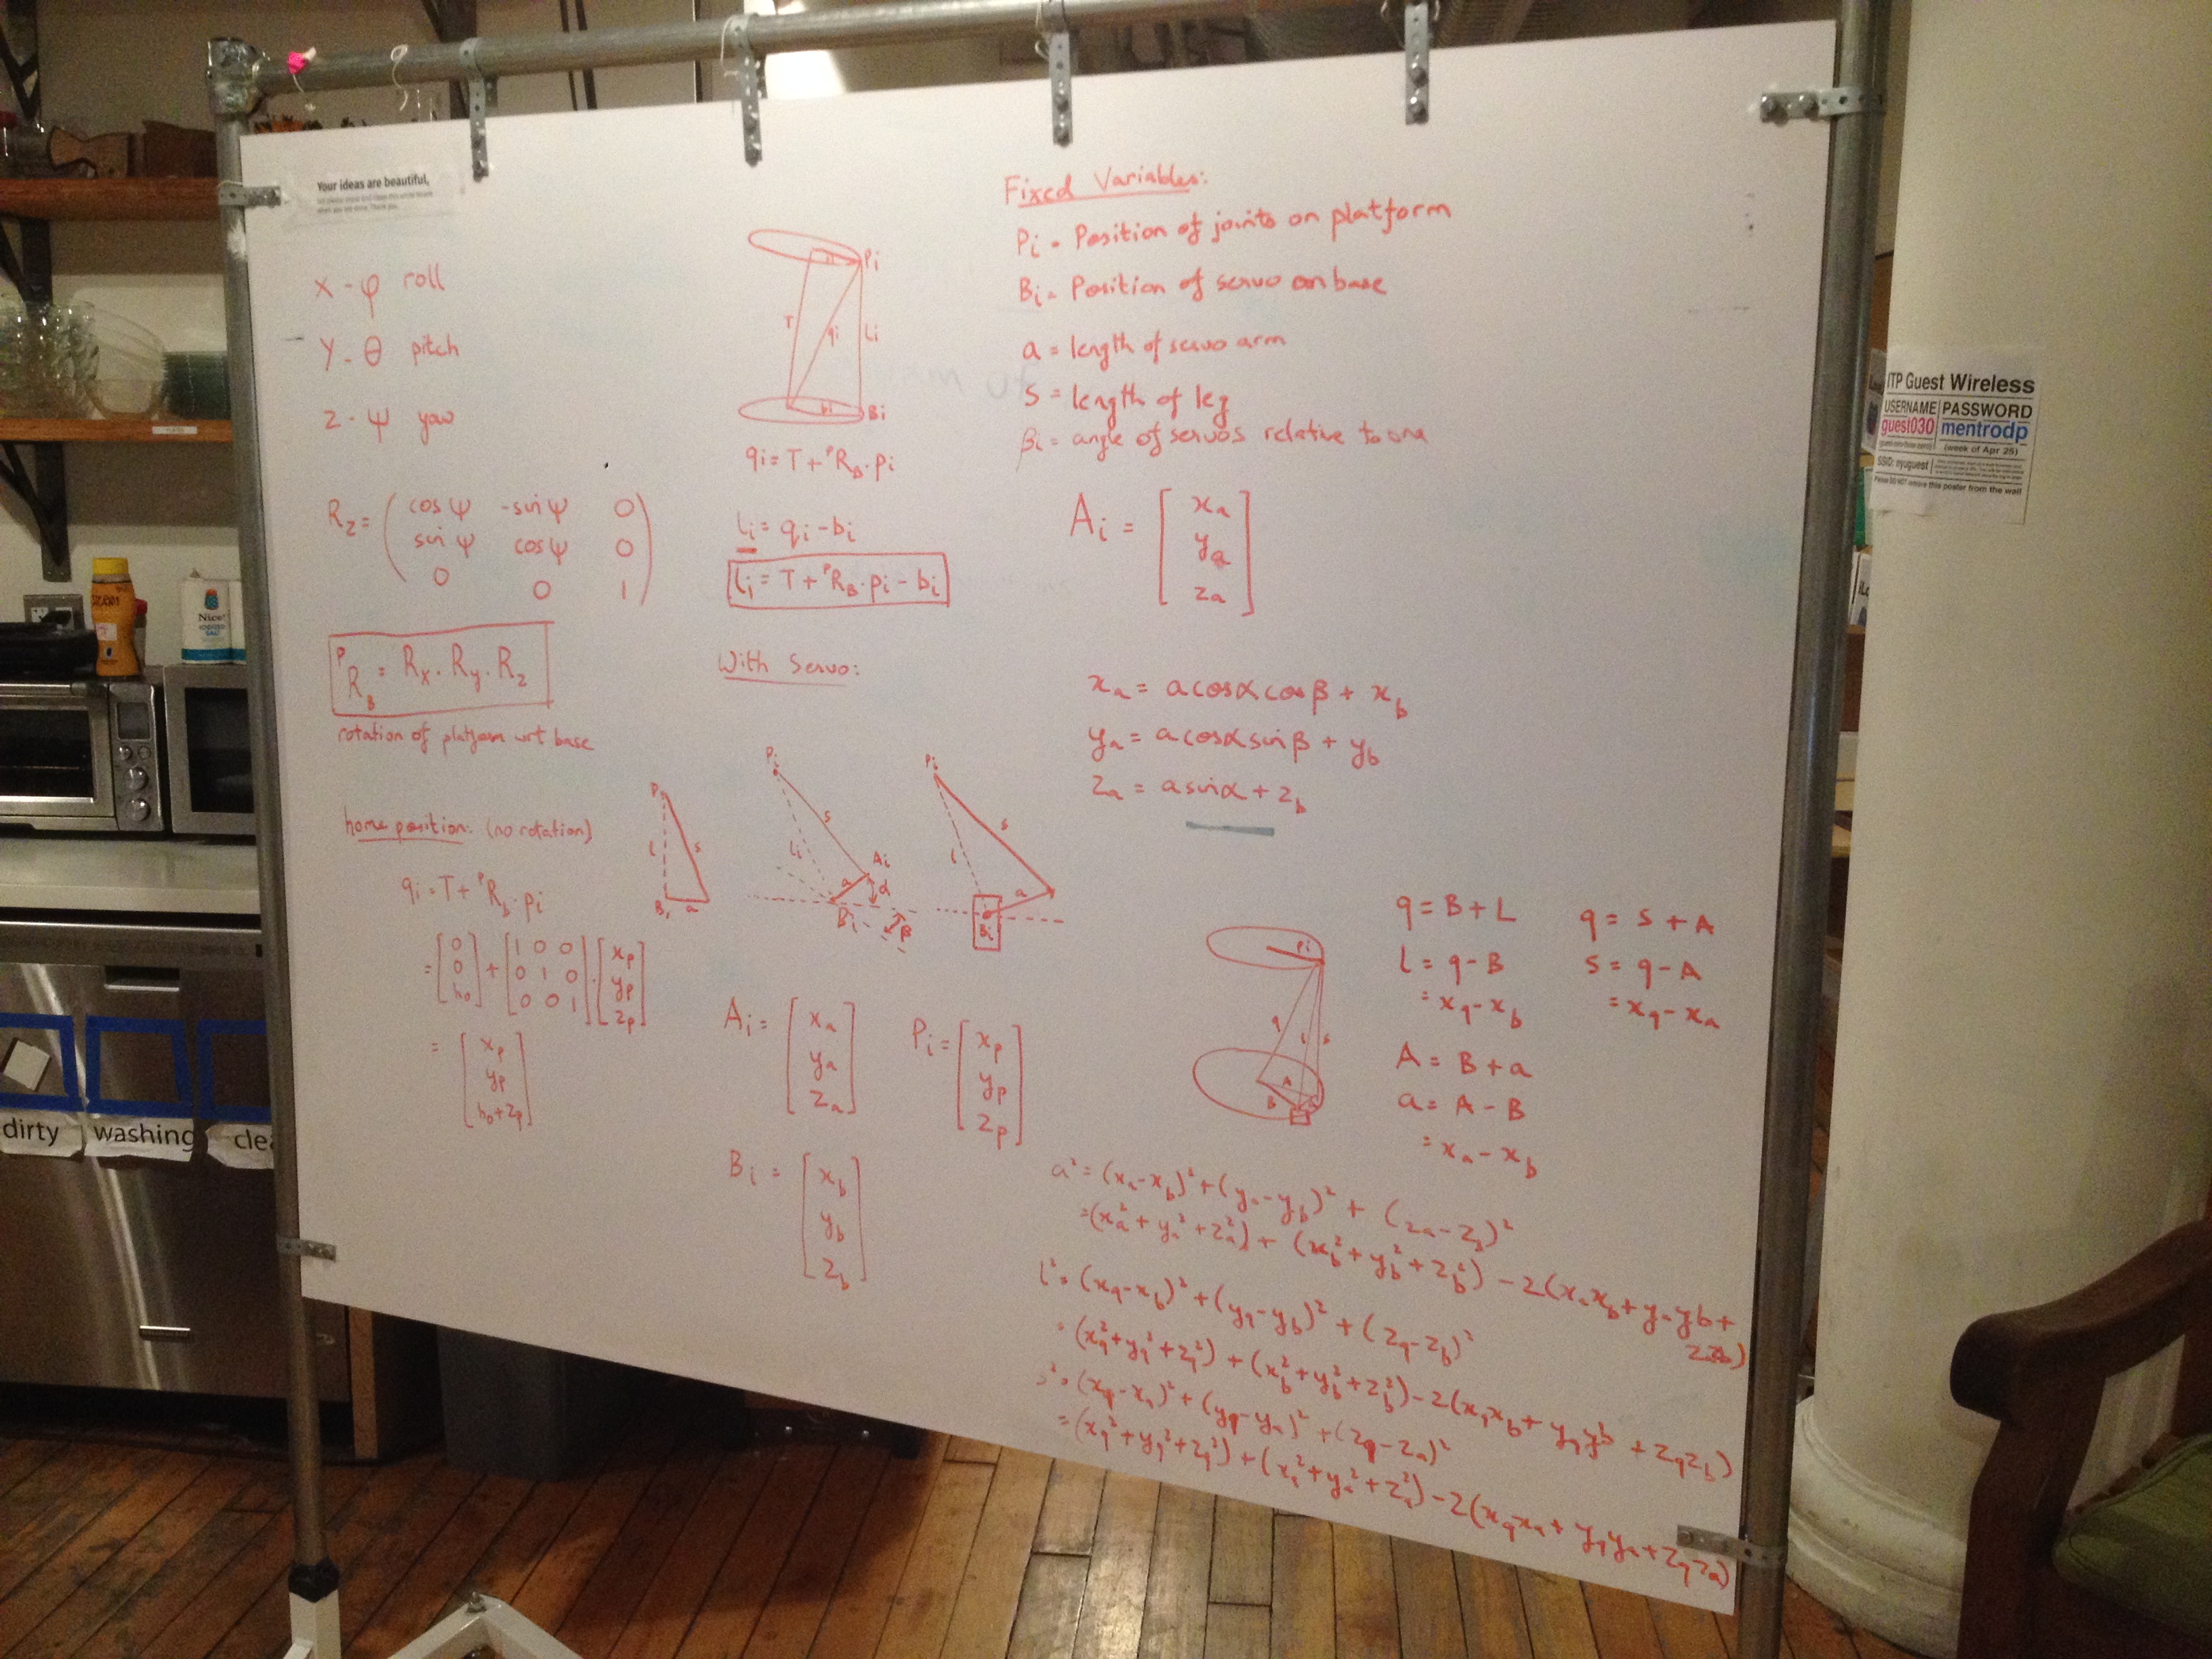 Your ideas are beautiful,
X - φ roll
Y - θ pitch
Z - ψ yaw
R_z = ( cos ψ -sin ψ 0
sin ψ cos ψ 0
0 0 1 )
ᴾR_B = R_x . R_y . R_z
rotation of platform wrt base
home position: (no rotation)
qi = T + ᴾR_b . pi
= [ 0 0 h₀ ] + [ 1 0 0 0 1 0 0 0 1 ] . [ x_p y_p z_p ]
= [ x_p y_p h₀+z_p ]
Pi
T qi Li
bi Bi
qi = T + ᴾR_B . pi
Li = qi - bi
li = T + ᴾR_B . pi - bi
With Servo:
Pi
l s
Bi a
Pi
s
Li
Ai
a α
Bi β
Pi
s
l
a
Bi
Ai = [ x_a y_a z_a ]
Pi = [ x_p y_p z_p ]
Bi = [ x_b y_b z_b ]
Fixed Variables:
Pi = Position of joints on platform
Bi = Position of servo on base
a = length of servo arm
s = length of leg
βi = angle of servos relative to
Ai = [ x_a y_a z_a ]
x_a = a cosα cosβ + x_b
y_a = a cosα sinβ + y_b
z_a = a sinα + z_b
Pi
q l s
A
B
q = B + L
l = q - B
= x_q - x_b
q = s + A
s = q - A
= x_q - x_a
A = B + a
a = A - B
= x_a - x_b
a² = (x_a - x_b)² + (y_a - y_b)² + (z_a - z_b)²
= (x_a² + y_a² + z_a²) + (x_b² + y_b² + z_b²) - 2(x_a x_b + y_a y_b +
z_a z_b)
l² = (x_q - x_b)² + (y_q - y_b)² + (z_q - z_b)²
= (x_q² + y_q² + z_q²) + (x_b² + y_b² + z_b²) - 2(x_q x_b + y_q y_b + z_q z_b)
s² = (x_q - x_a)² + (y_q - y_a)² + (z_q - z_a)²
= (x_q² + y_q² + z_q²) + (x_a² + y_a² + z_a²) - 2(x_q x_a + y_q y_a + z_q z_a)
ITP Guest Wireless
USERNAME PASSWORD
guest030 mentrodp
(week of Apr 25)
SSID: nyuguest
Please DO NOT remove this poster from the wall
Nice!
dirty
washing
clea